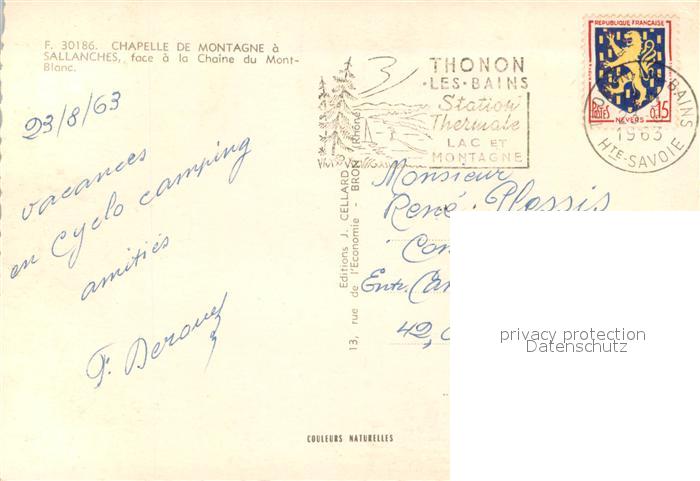 F. 30186. CHAPELLE DE MONTAGNE à
SALLANCHES, face à la Chaîne du Mont-
Blanc.
23/8/63
vacances
en Cyclo camping
amitiés
COULEURS NATURELLES
Editions J. CELLARD
13, rue de l'Economie - BRON (Rhône)
THONON
·LES·BAINS
Station
Thermale
LAC ET
MONTAGNE
REPUBLIQUE FRANÇAISE
POSTES
0,15
NEVERS
BAINS
1963
HTE-SAVOIE
Monsieur
René Plessis
42,
privacy protection
Datenschutz